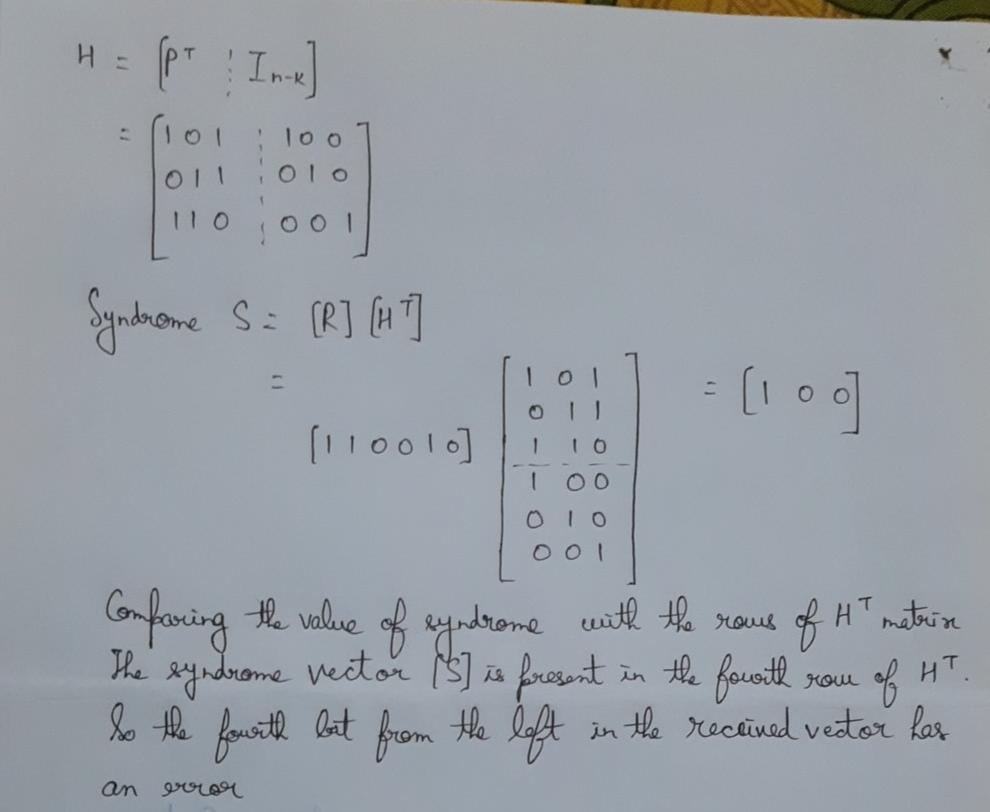 H = [P^T ⋮ I_{n-k}]
= [1 0 1 ⋮ 1 0 0
0 1 1 ⋮ 0 1 0
1 1 0 ⋮ 0 0 1]
Syndrome S = [R] [H^T]
= [1 1 0 0 1 0] [1 0 1
0 1 1
1 1 0
1 0 0
0 1 0
0 0 1] = [1 0 0]
Comparing the value of syndrome with the rows of H^T matrix
The syndrome vector [S] is present in the fourth row of H^T.
So the fourth bit from the left in the received vector has
an error